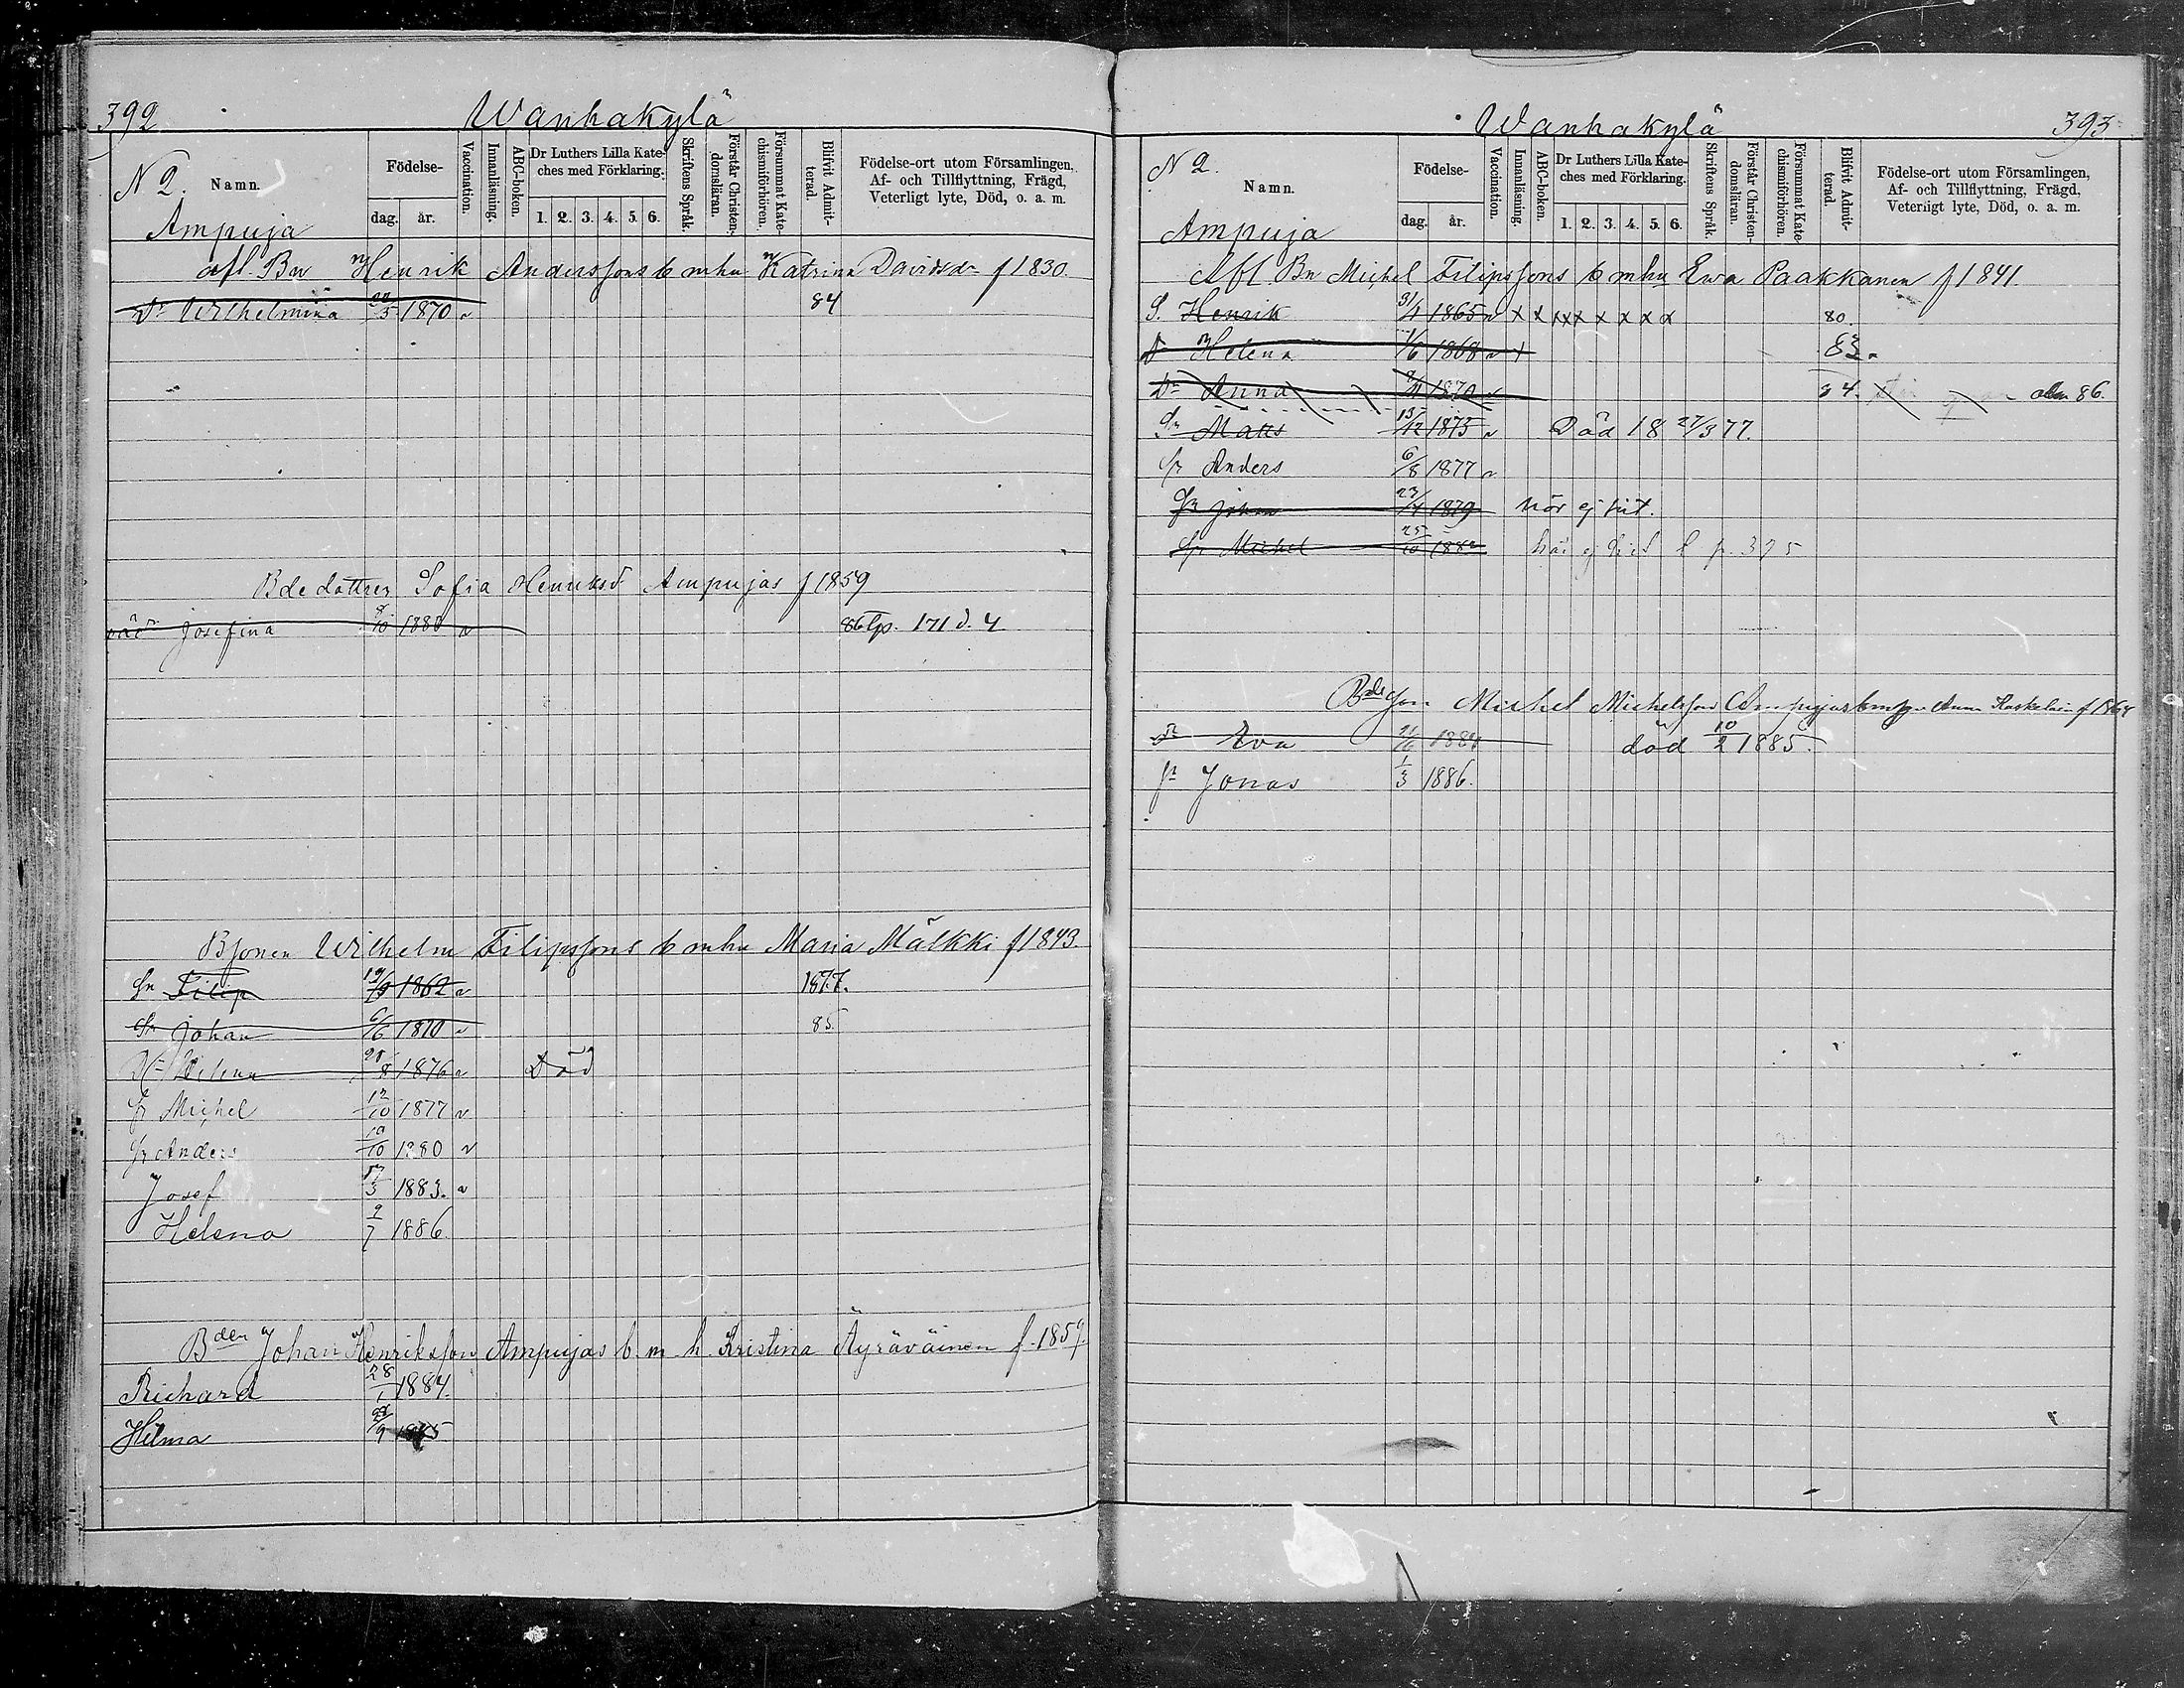 392
Wanhakylä
N 2.
Namn.
Födelse-
dag.
år.
Vaccination.
Innanläsning.
ABC-boken.
Dr Luthers Lilla Kate-
ches med Förklaring.
1. 2. 3. 4. 5. 6.
Skriftens Språk.
Förstår Christen-
domsläran.
Försummat Kate-
chismiförhören.
Blifvit Admit-
terad.
Födelse-ort utom Församlingen,
Af- och Tillflyttning, Frägd,
Veterligt lyte, Död, o. a. m.
Ampuja
afl. Bn Henrik Anderssons b mhu Katrina Davidsdr f 1830.
Dr Wilhelmina 1870 v 84
Bde dottren Sofia Henriksd Ampujas f 1859
Josefina 8/10 1880 v 86 Tp. 171 d. 4
Bsonen Wilhelm Filipssons b mhu Maria Mälkki f 1843.
Sn Filip 1862 v 1877.
Sn Johan 6/6 1870 v 85.
Dr Helena 1876 v Död
Sn Michel 12/10 1877 v
Sn Anders 10/10 1880 v
Josef 17/3 1883. v
Helena 9/7 1886.
Bden Johan Henriksson Ampujas b. m. h. Kristina Äyräväinen f. 1859.
Richard 28/1 1884.
Hilma 1885
Wanhakylä
393
N 2.
Namn.
Födelse-
dag.
år.
Vaccination.
Innanläsning.
ABC-boken.
Dr Luthers Lilla Kate-
ches med Förklaring.
1. 2. 3. 4. 5. 6.
Skriftens Språk.
Förstår Christen-
domsläran.
Försummat Kate-
chismiförhören.
Blifvit Admit-
terad.
Födelse-ort utom Församlingen,
Af- och Tillflyttning, Frägd,
Veterligt lyte, Död, o. a. m.
Ampuja
Afl Bn Michel Filipssons b mhu Ewa Paakkanen f 1841.
S. Henrik 1865 v x x xxx x x x x 80.
d Helena 1/6 1868 v x 83.
Dr Anna 1870 v 84. 86.
Sn Matts 13/12 1875 v Död 18 27/3 77.
Sn Anders 6/8 1877 v
Sn Johan 23/4 1879 hör ej hit.
Sn Michel 25/10 1882 hör ej hit l p. 375
Bde son Michel Michelsson Ampujas
dr Eva 1884 död 10/2 1885.
sn Jonas 1/3 1886.